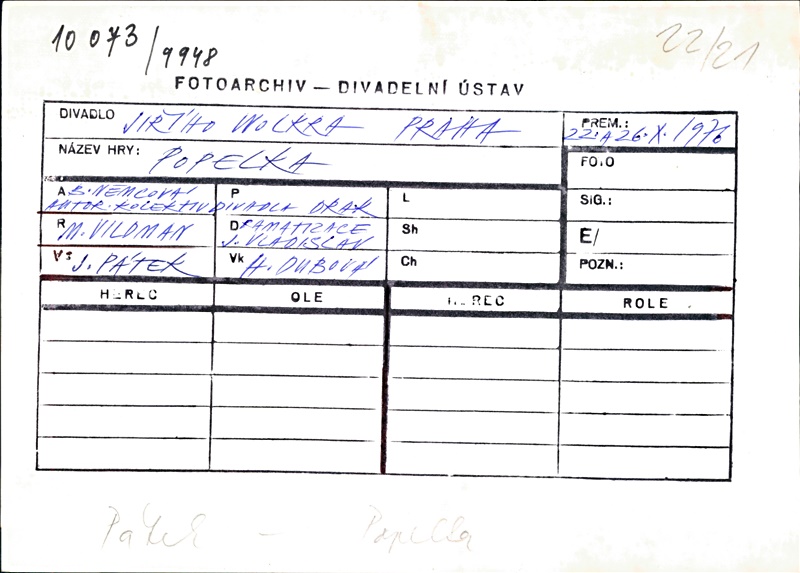 10 073/9948
22/21
FOTOARCHIV — DIVADELNÍ ÚSTAV
DIVADLO JIŘÍHO WOLKRA PRAHA
PREM.: 22. A 26. X. 1976
NÁZEV HRY: POPELKA
FOTO
A B. NĚMCOVÁ P L SIG.:
AUTOR. KOLEKTIV DIVADLA DRAK
R M. VILDMAN DRAMATIZACE Sh E/
J. VLADISLAV
Vs J. PÁTEK Vk H. DUBOVÁ Ch POZN.:
HEREC ROLE HEREC ROLE
Pátek — Popelka